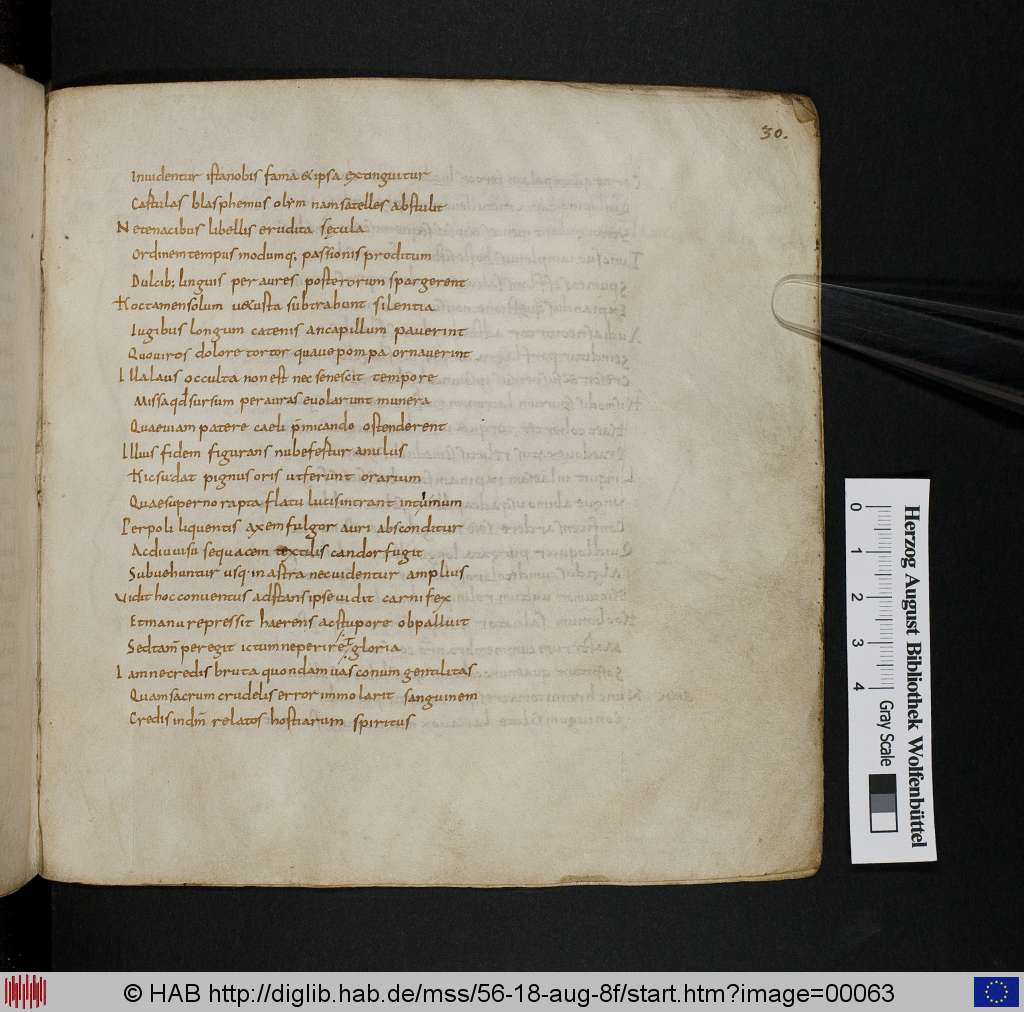 30.
Inuidentur istanobis fama & ipsa extinguitur
Castulas blasphemus olym nam satelles abstulit
Ne tenacibus libellis erudita sęcula
Ordinem tempus modumq; passionis proditum
Dulcib; linguis per aures posterorum spargerent
Hoc tamen solum uetusta subtrabunt silentia
Iugibus longum catenis an capillum pauerint
Quo uiros dolore tortor quaue pompa ornauerint
Illa laus occulta non est nec senescit tempore
Missa qd sursum per auras euolarunt munera
Quae uiam patere caeli p̄micando ostenderent
Illius fidem figurans nube festur anulus
Hic sudat pignus oris ut ferunt orarium
Quae superno rapta flatu lucis intrant intumum
Per poli liquentis axem fulgor auri absconditur
Ac diu uisu sequacem textilis candor fugit
Subuehuntur usq; in astra nec uidentur amplius
Vidit hoc conuentus adstans ipse uidit carnifex
Et manu repressit haerens ac stupore obpalluit
Sed tam̄ peregit ictum ne periret gloria
Iamne credis bruta quondam uasconum gentilitas
Quam sacrum crudelis error immolarit sanguinem
Credis in dm̄ relatos hostiarum spiritus
Herzog August Bibliothek Wolfenbüttel
0 1 2 3 4 Gray Scale
© HAB http://diglib.hab.de/mss/56-18-aug-8f/start.htm?image=00063